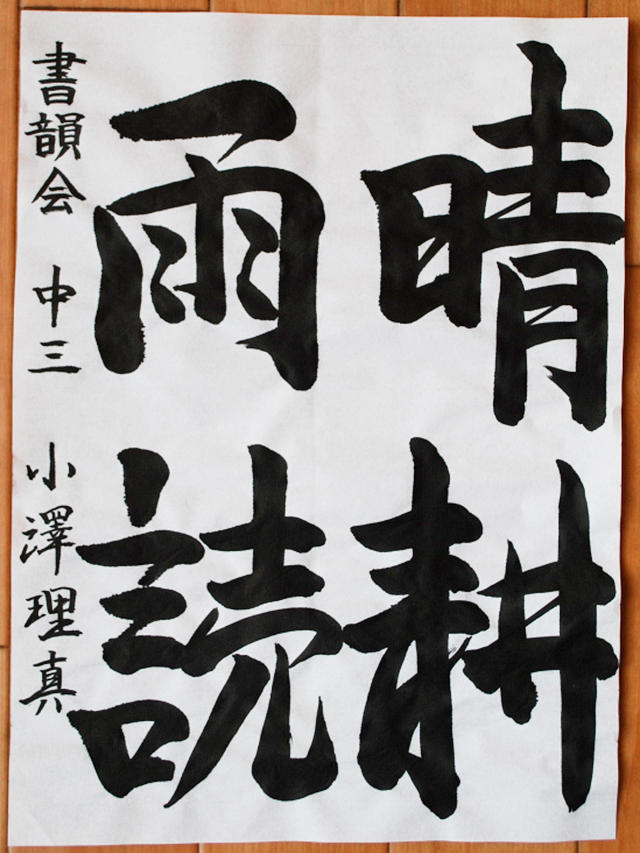 晴耕
雨読
書韻会 中三 小澤理真